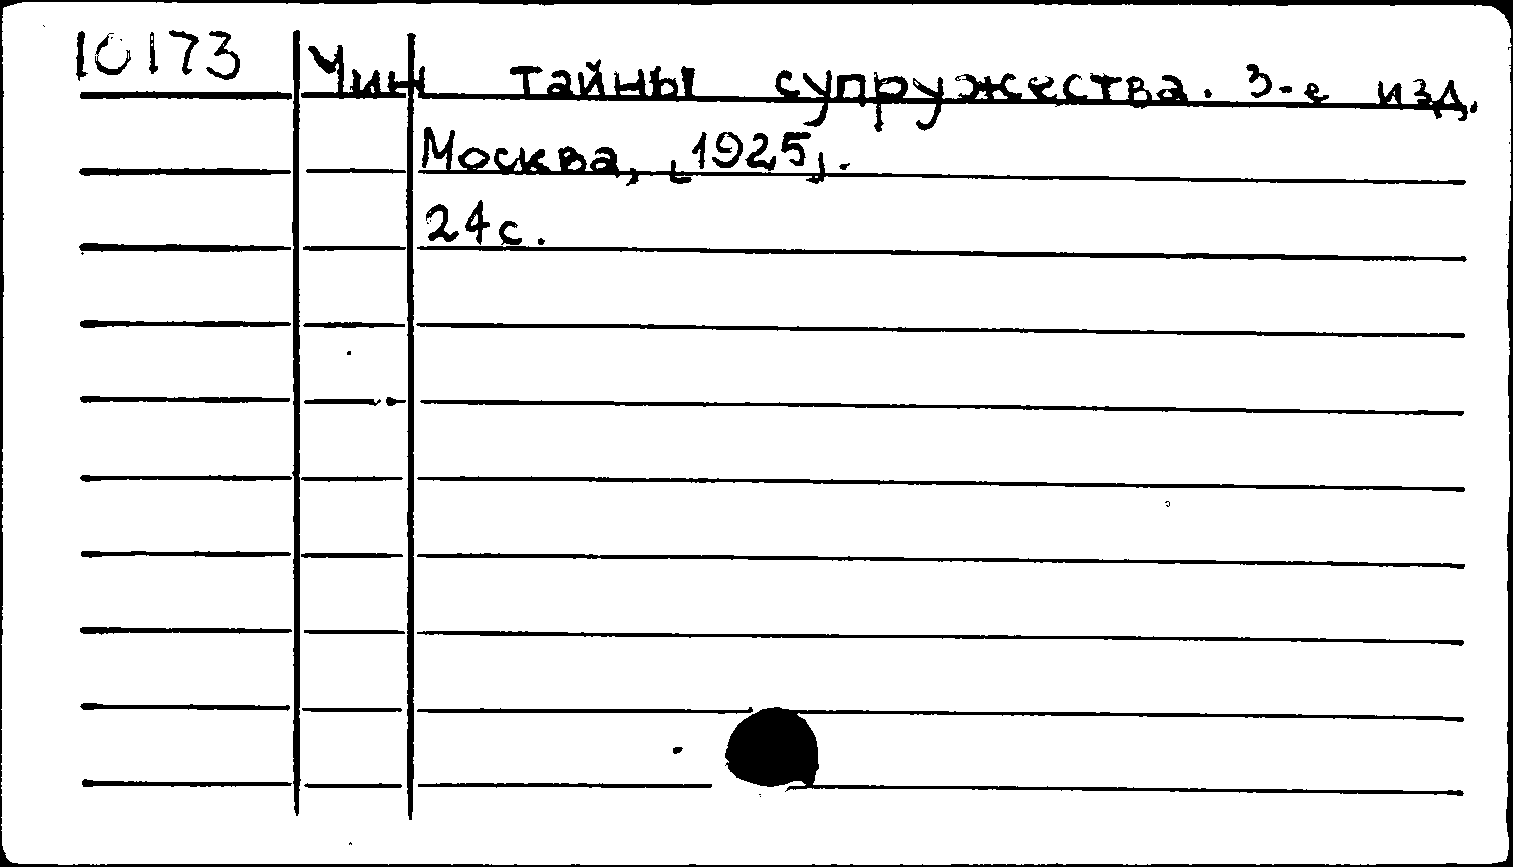 10173 Чин тайны супружества. 3-е изд.
Москва, [1925].
24 с.